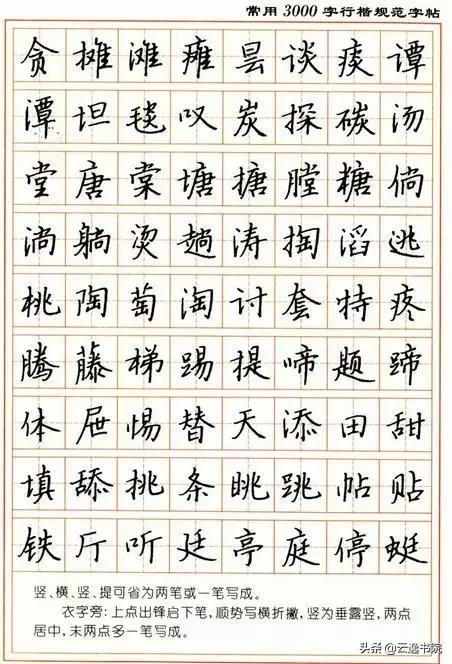 常用3000字行楷规范字帖
贪摊滩瘫昙谈痰谭
潭坦毯叹炭探碳汤
堂唐棠塘搪膛糖倘
淌躺烫趟涛掏滔逃
桃陶萄淘讨套特疼
腾藤梯踢提啼题蹄
体屉惕替天添田甜
填舔挑条眺跳帖贴
铁厅听廷亭庭停蜓
竖、横、竖、提可省为两笔或一笔写成。
衣字旁：上点出锋启下笔，顺势写横折撇，竖为垂露竖，两点
居中，末两点多一笔写成。
头条 @云逸书院